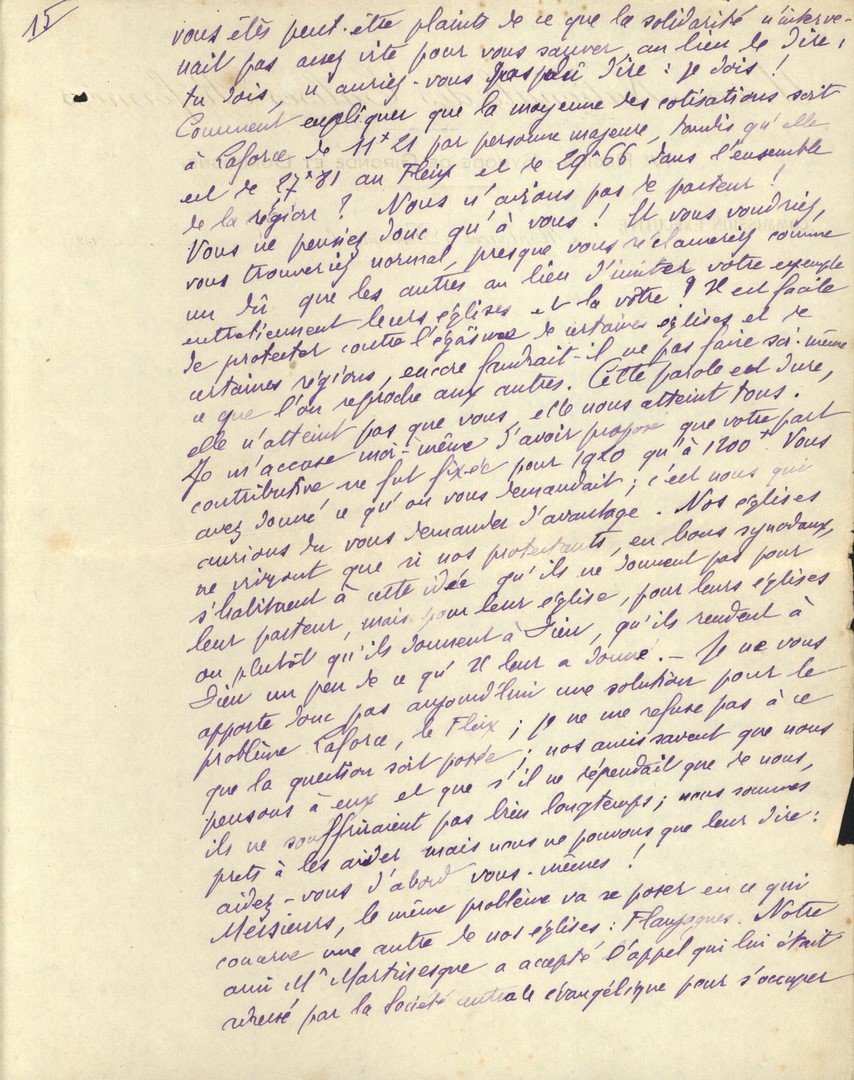 15
vous êtes peut-être plaints de ce que la solidarité n'interve-
nait pas assez vite pour vous sauver, au lieu de dire,
tu dois, n'auriez-vous pas pû dire : je dois !
Comment expliquer que la moyenne des cotisations soit
à Laforce de 11f 21 par personne majeure, tandis qu'elle
est de 27f 81 au Fleix et de 29f 66 dans l'ensemble
de la région ? Nous n'avions pas de pasteur !
Vous ne pensiez donc qu'à vous ! Et vous voudriez,
vous trouveriez normal, presque vous réclameriez comme
un dû que les autres au lieu d'imiter votre exemple
entretiennent leurs églises et la vôtre ? Il est facile
de protester contre l'égoïsme de certaines églises et de
certaines régions, encore faudrait-il ne pas faire soi-même
ce que l'on reproche aux autres. Cette parole est dure,
elle n'atteint pas que vous, elle nous atteint tous.
Je m'accuse moi-même d'avoir proposé que votre part
contributive ne fut fixée pour 1920 qu'à 1200f. Vous
avez donné ce qu'on vous demandait ; c'est nous qui
aurions du vous demander d'avantage. Nos églises
ne vivront que si nos protestants, en bons synodaux,
s'habituent à cette idée qu'ils ne donnent pas pour
leur pasteur, mais pour leur église, pour leurs églises
ou plutôt qu'ils donnent à Dieu, qu'ils rendent à
Dieu un peu de ce qu'Il leur a donné. – Je ne vous
apporte donc pas aujourd'hui une solution pour le
problème Laforce, le Fleix ; je ne me refuse pas à ce
que la question soit posée ; nos amis savent que nous
pensons à eux et que s'il ne dépendait que de nous,
ils ne souffriraient pas bien longtemps ; nous sommes
prêts à les aider mais nous ne pouvons que leur dire :
aidez-vous d'abord vous-mêmes !
Messieurs, le même problème va se poser en ce qui
concerne une autre de nos églises : Flaujagues. Notre
ami Mr Martusesque a accepté l'appel qui lui était
adressé par la Société centrale évangélique pour s'occuper